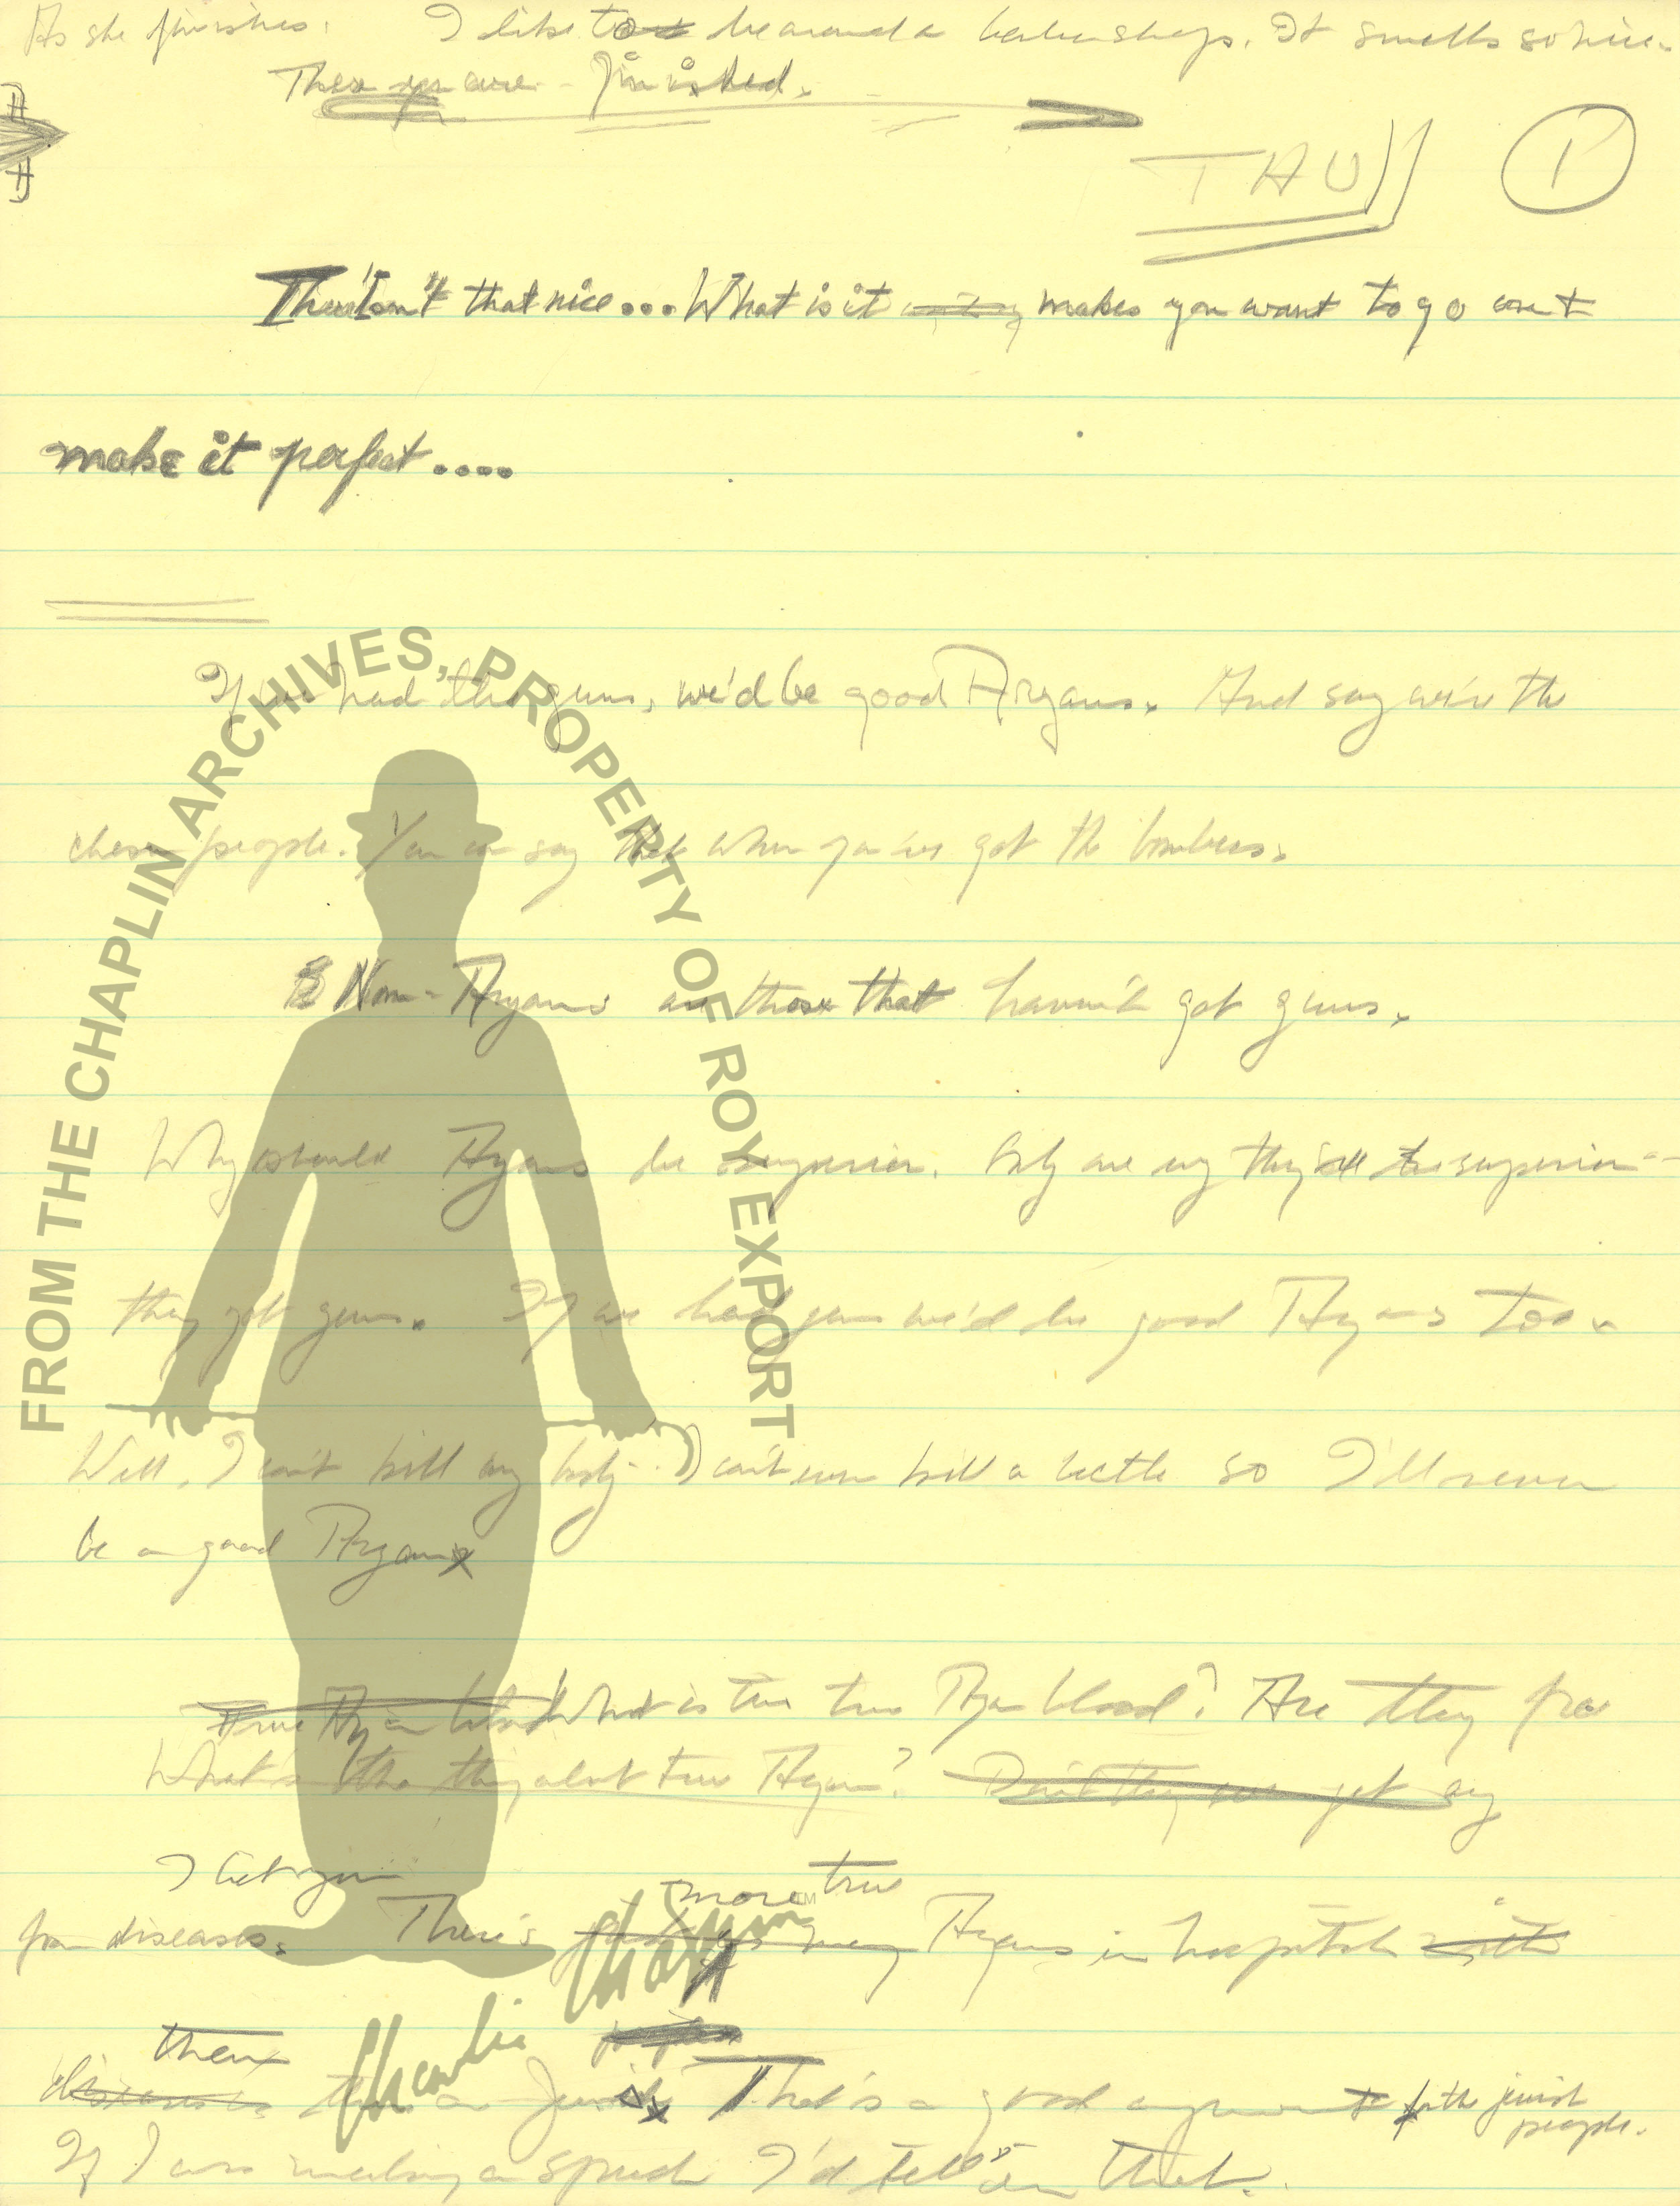 As she finishes: I like to be around a barber shops. It smells so nice.
There you are - finished.
THU
1
Isn't that nice... What is it makes you want to go out
make it perfect....
If we had the guns, we'd be good Aryans. And say we're the
chosen people. You can say that when you've got the bombers.
Non-Aryans are those that haven't got guns.
Why should Aryans be superior. Only one way they're superior --
they got guns. If we had guns we'd be good Aryans too.
Well, I can't kill any body. I can't even kill a beetle so I'll never
be a good Aryan
True Aryan blood What is this true Aryan blood? Are they free
What's this thing about true Aryan? Don't they ever get any
I bet you
more true
from diseases. There's many Aryans in hospitals with
then
diseases than are Jewish. That's a good argument for the jewish
people.
If I was making a speech I'd tell 'em that.
FROM THE CHAPLIN ARCHIVES, PROPERTY OF ROY EXPORT
Charlie Chaplin TM